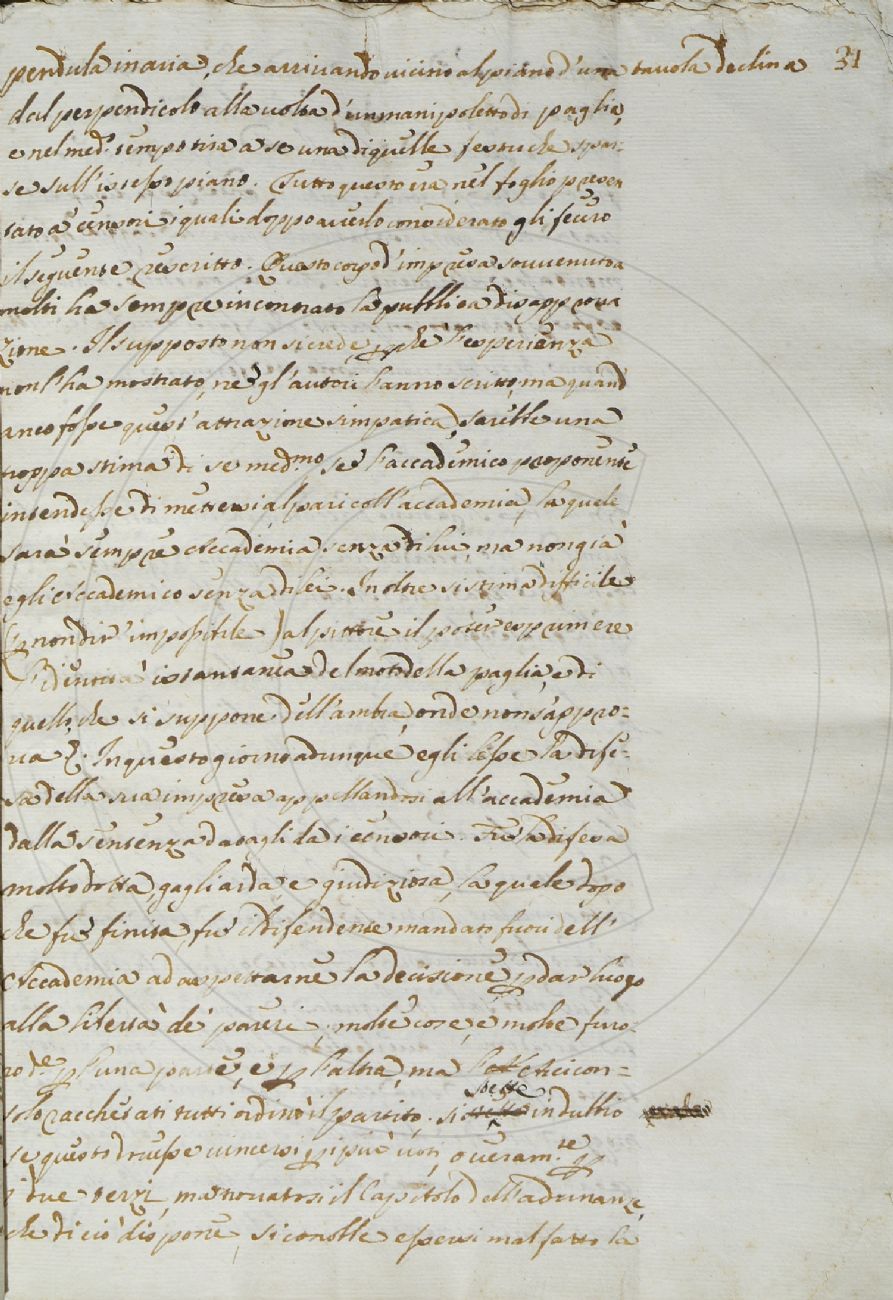 31
pendula in aria, che arrivando vicino al piano d'una tavola declina
dal perpendicolo alla volta d'un manipoletto di paglia,
e nel med.º tempo tira a se una di quelle festuche spar-
se sull'istesso piano. Tutto questo era nel foglio presen
tato a' censori, i quali doppo averlo considerato gli fecero
il seguente rescritto. Questo corpo d'impresa sovvenuto a
molti ha sempre incontrato la pubblica disapprova
zione. Il supposto non si crede, pche l'esperienza
non l'ha mostrato, ne gl'autori l'anno scritto, ma quand
anco fosse quest'attrazione simpatica, sarebbe una
troppa stima di se med.mo se l'accademico proponente
intendesse di mettersi al pari coll'accademia, la quale
sarà sempre Accademia senza di lui, ma non già
egli Accademico senza di lei. Inoltre si stima difficile
(p non dir' impossibile) al pittore il poter esprimere
l'identità istantanea del moto della paglia, e di
quello, che si suppone dell'ambra, onde non s'appro-
va &. In questo giorno adunque egli lesse la dife-
sa della sua impresa appellandosi all'accademia
dalla sentenza datagli da i censori. Fù la difesa
molto dotta, gagliarda e giudiziosa, la quale dopo
che fù finita, fù il Difendente mandato fuori dell'
Accademia ad aspettarne la decisione p dar luogo
alla libertà de' pareri; molte cose, e molte furo-
no d.e p l'una parte, e p l'altra, ma l'Arcicon-
solo racchetati tutti ordinò il partito. Si stette in dubbio
se questo dovesse vincersi p i più voti, o veram.te p
i due terzi, ma trovatosi il Capitolo dell'adunanze,
che di ciò dispone, si conobbe essersi mal fatto la